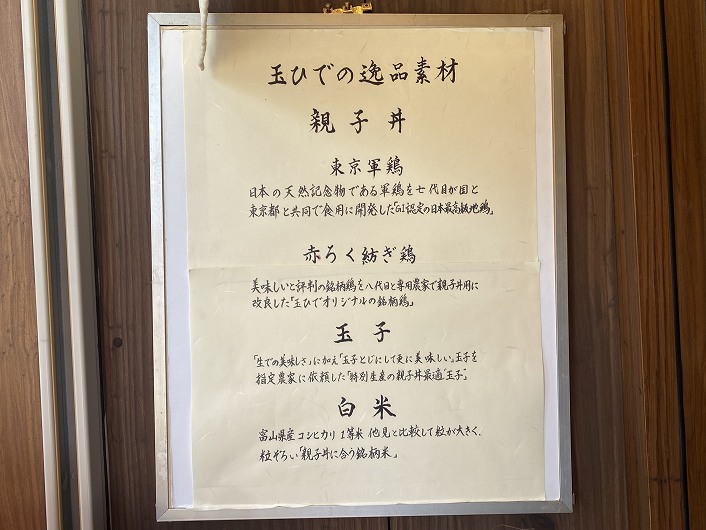 玉ひでの逸品素材
親子丼
東京軍鶏
日本の天然記念物である軍鶏を七代目が国と
東京都と共同で食用に開発した「GI認定の日本最高級地鶏」
赤ろく紡ぎ鶏
美味しいと評判の銘柄鶏を八代目と専用農家で親子丼用に
改良した「玉ひでオリジナルの銘柄鶏」
玉子
「生での美味しさ」に加え「玉子とじにして更に美味しい」玉子を
指定農家に依頼した「特別生産の親子丼最適"玉子"」
白米
富山県産コシヒカリ1等米 他見と比較して粒が大きく、
粒ぞろい「親子丼に合う銘柄米」